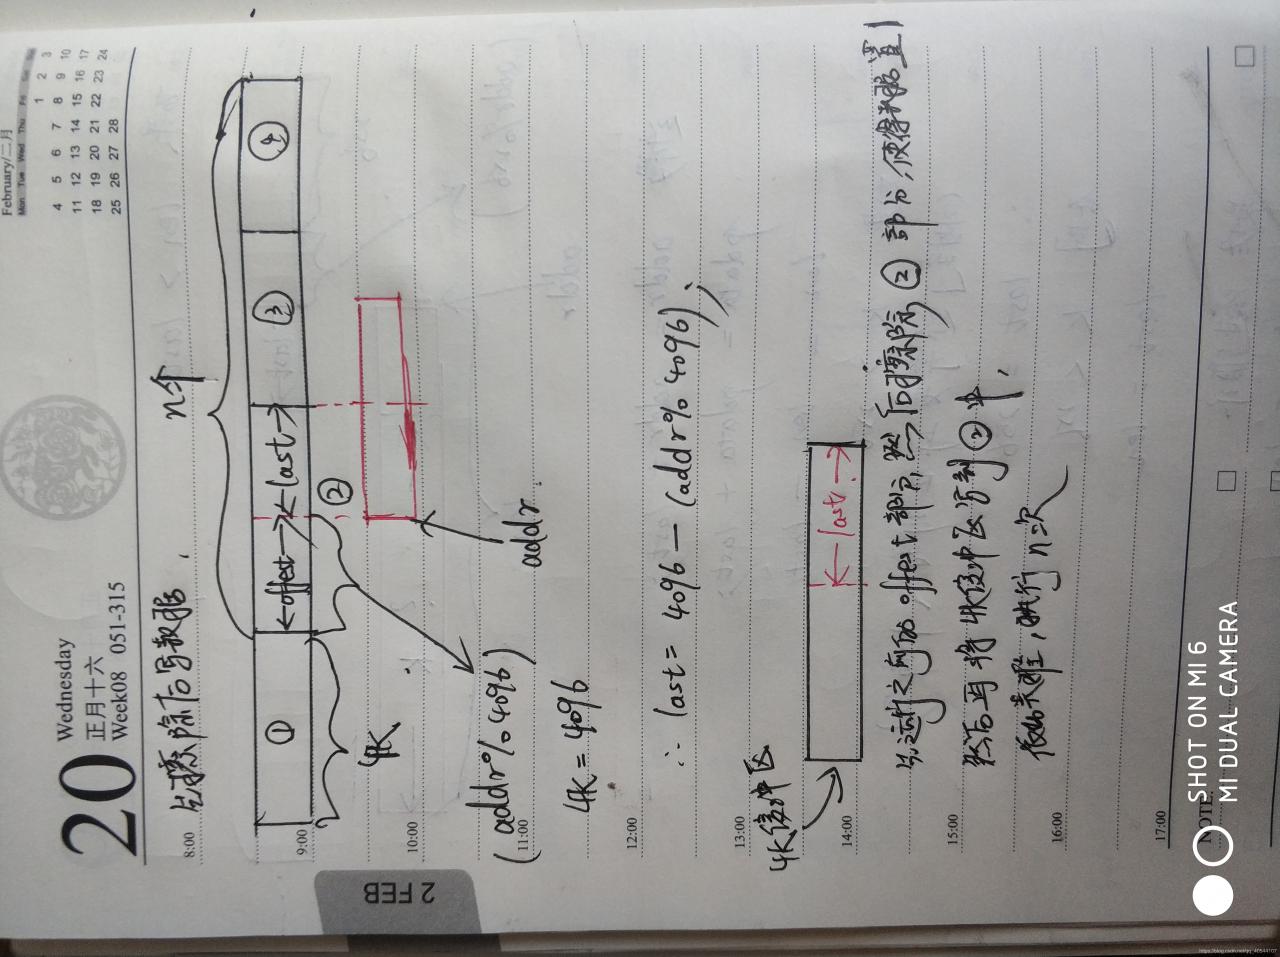 February/二月
Mon Tue Wed Thu Fri Sat Sun
1 2 3
4 5 6 7 8 9 10
11 12 13 14 15 16 17
18 19 20 21 22 23 24
25 26 27 28
20
Wednesday
正月十六
Week08 051-315
2 FEB
8:00
先擦除后写数据.
n个
9:00
①
←offest→
←last→
②
③
④
4K
10:00
addr.
(addr%4096)
11:00
4K = 4096
12:00
∴ last = 4096 - (addr% 4096),
13:00
4K缓冲区
14:00
←last→
offest部分,然后擦除②部分,使得数据置1
15:00
然后再将4K缓冲区写到②中,
16:00
依此类推,执行n次
17:00
NOTE:
SHOT ON MI 6
MI DUAL CAMERA